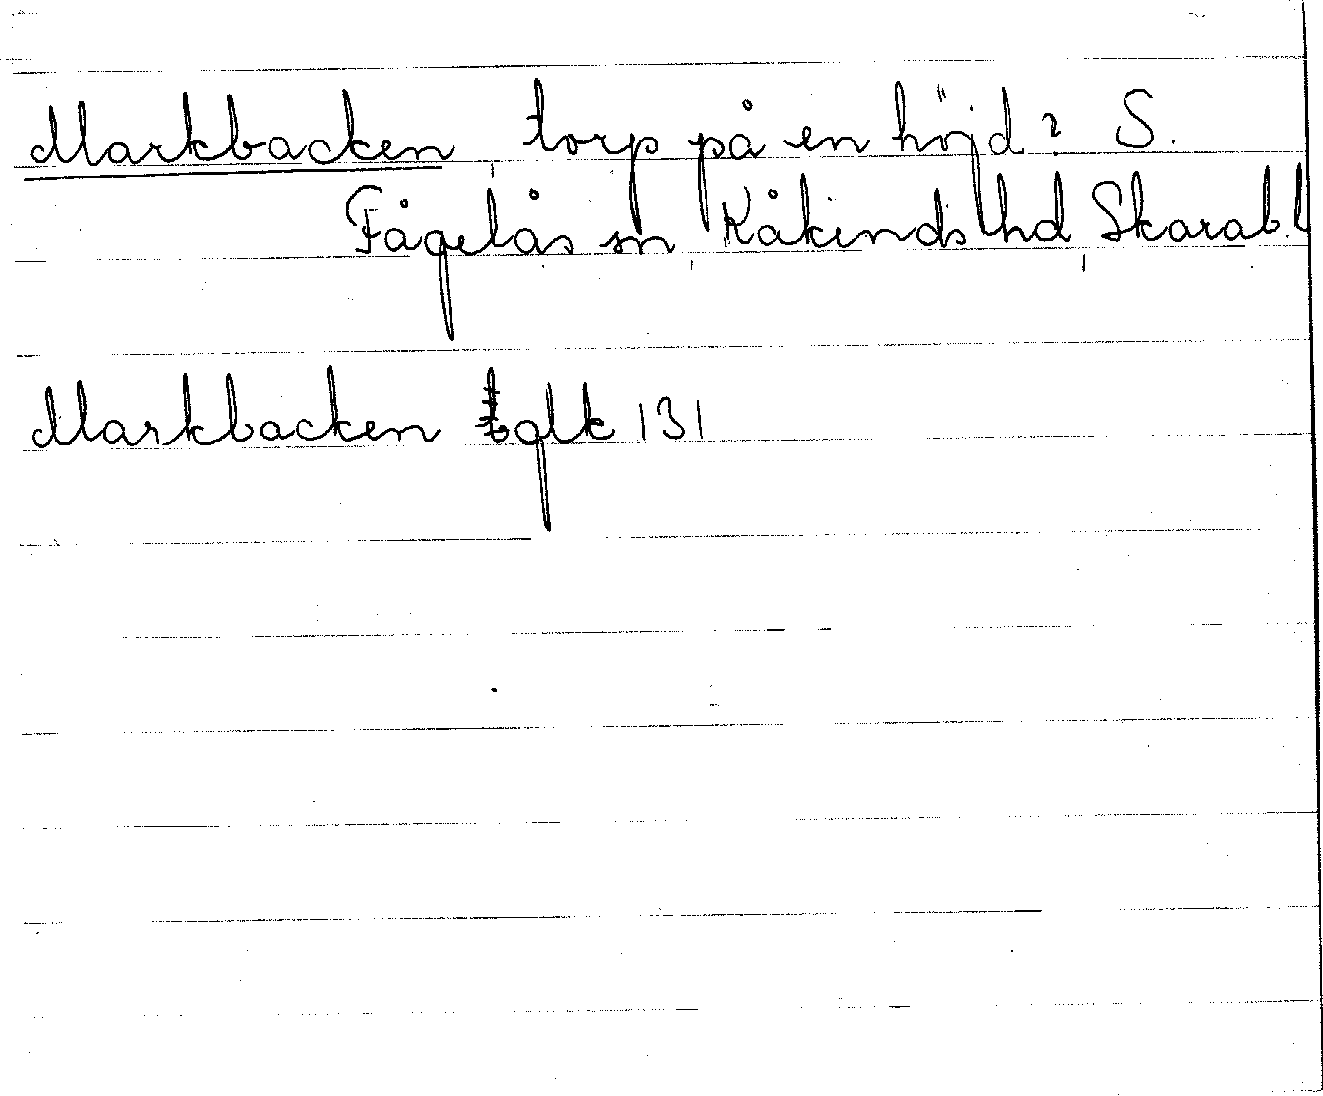 Markbacken torp på en höjd? S.
Fågelås sn Kåkinds hd Skarab.l
Markbacken glk 131